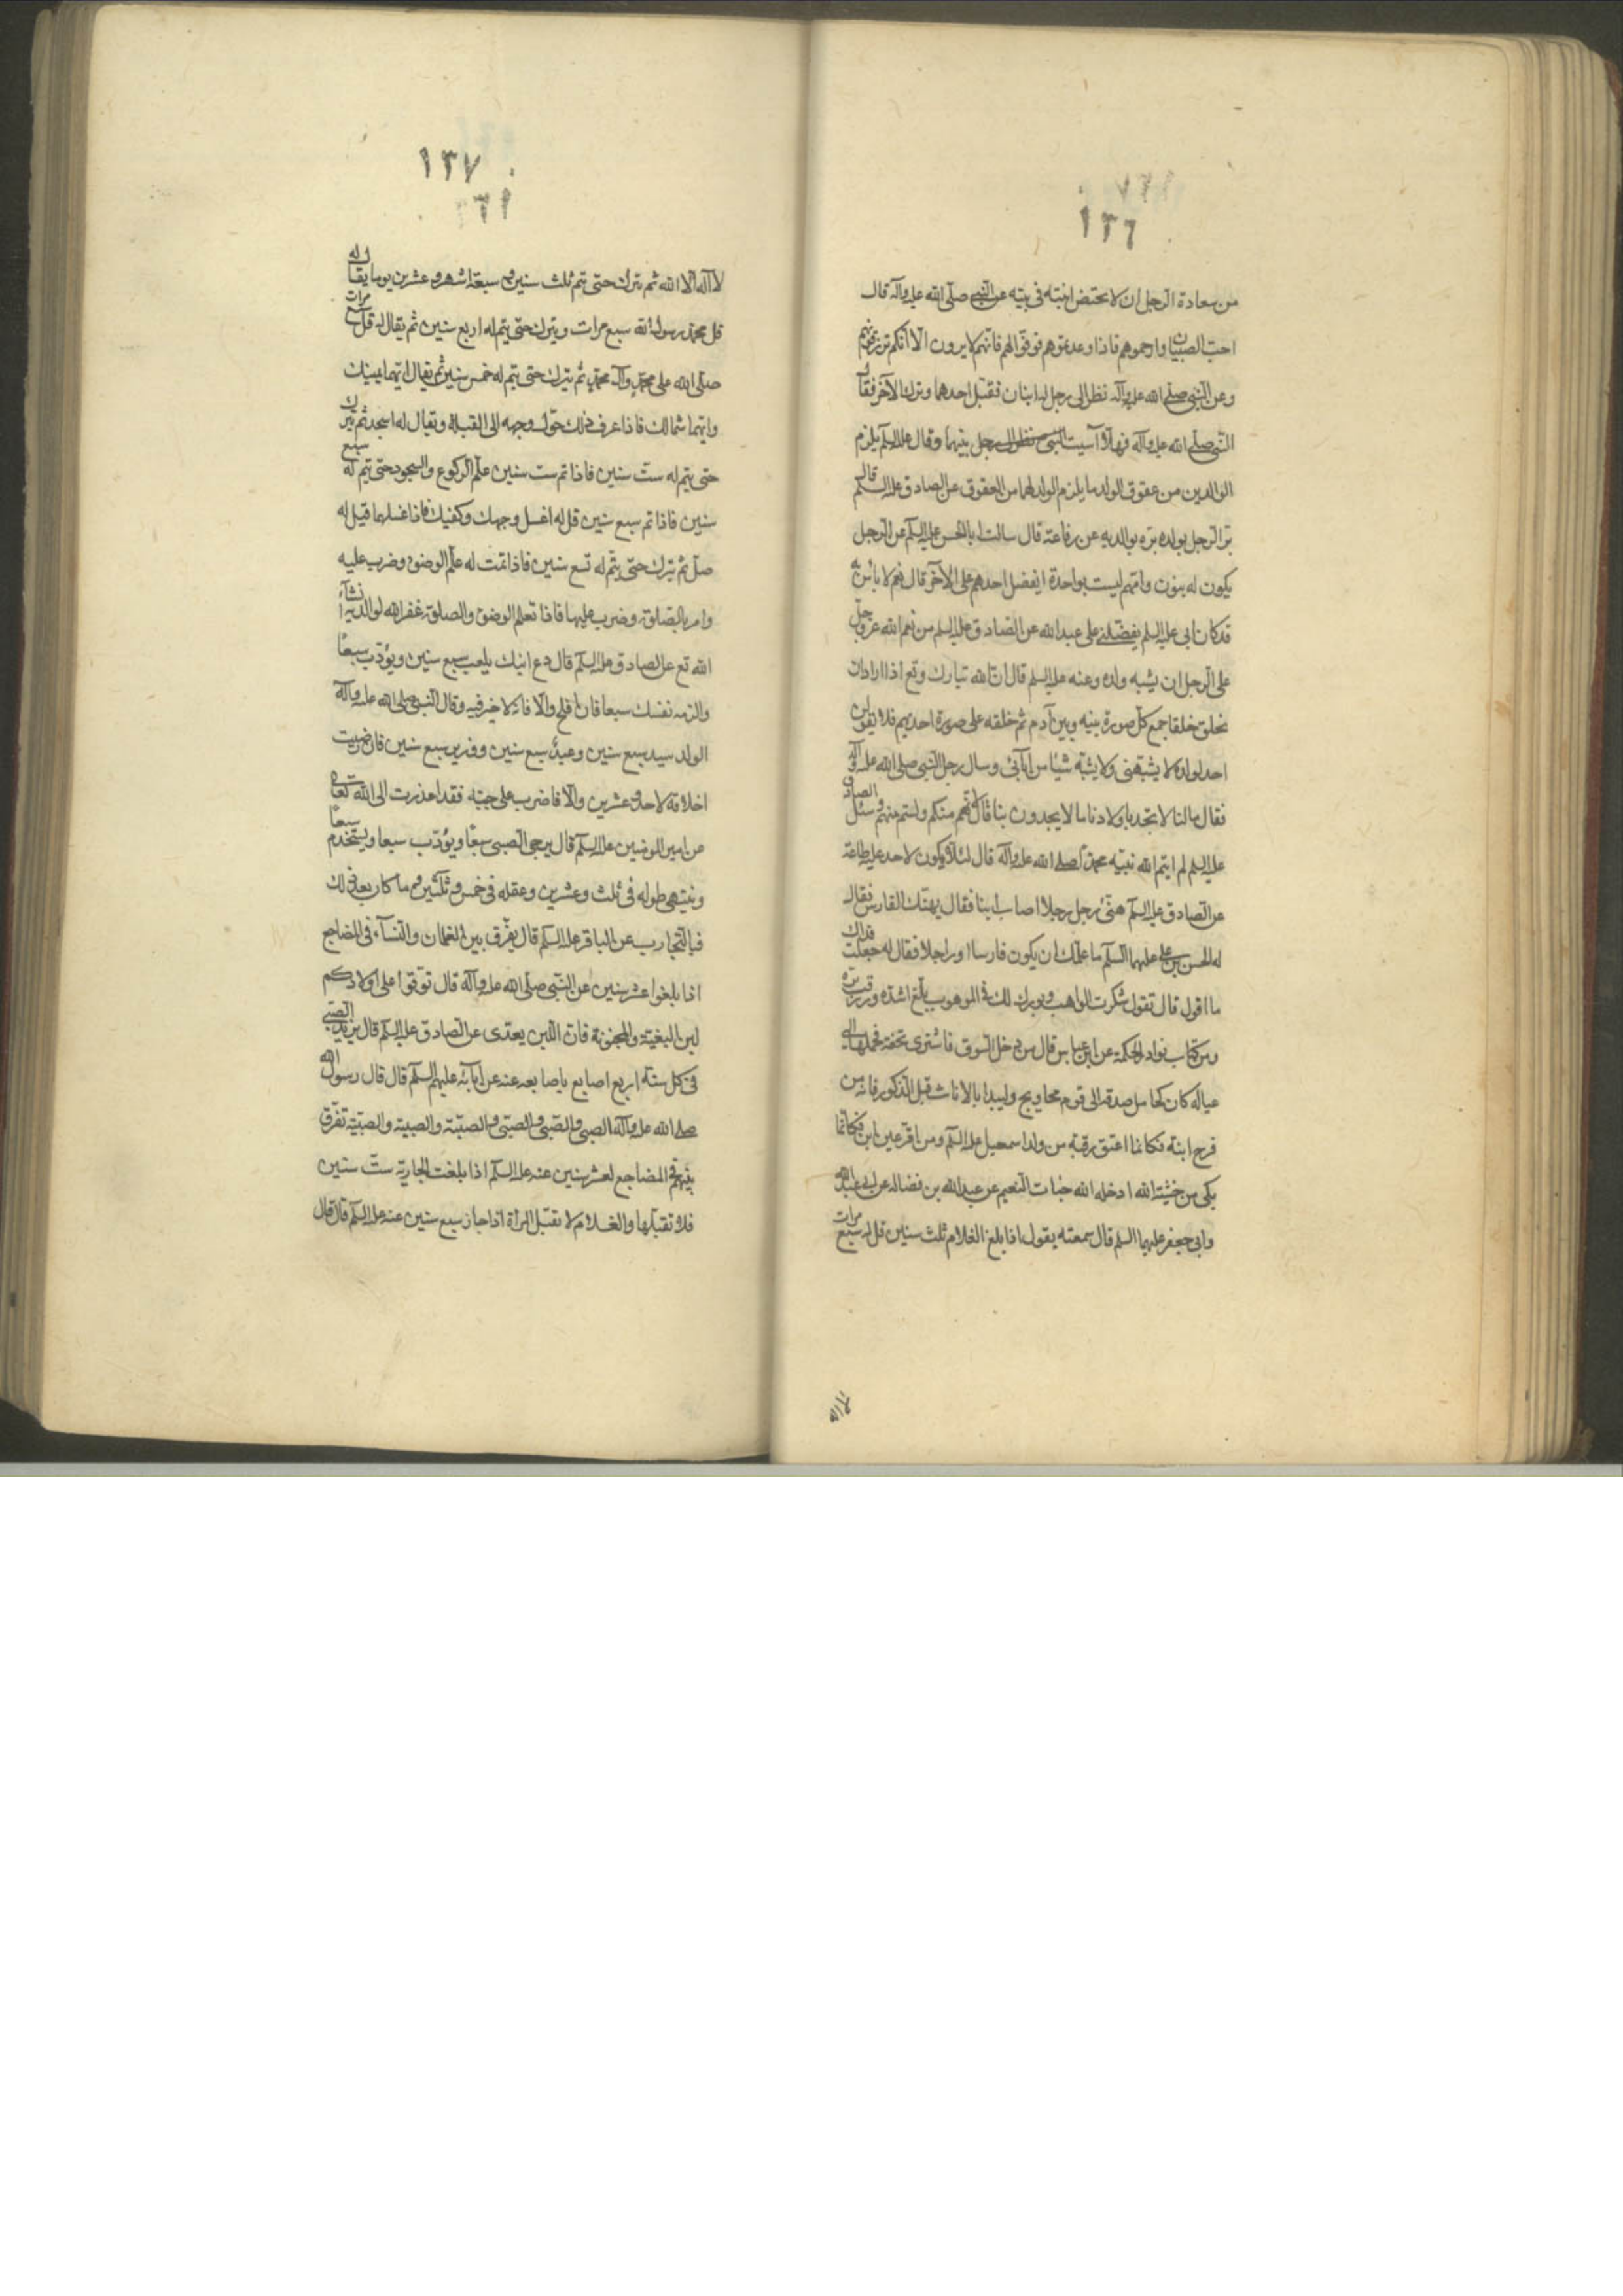 ١٣٦
من سعادة الرجل ان لا تحتض ابنته فى بيته عن النبى صلى الله عليه وآله قال
احبوا الصبيان وارحموهم فاذا وعدتموهم ففوا لهم فانهم لا يرون الا انكم ترزقونهم
وعن النبى صلى الله عليه وآله نظر الى رجل له ابنان فقبل احدهما وترك الآخر فقال
النبى صلى الله عليه وآله فهلا آسيت بينهما وقال عليه السلم يلزم
الوالدين من عقوق الولد ما يلزم الولد لهما من العقوق عن الصادق عليه السلم قال
بر الرجل بولده بره بوالديه عن رفاعة قال سالت ابا الحسن عليه السلم عن الرجل
يكون له بنون وامهم ليست بواحدة ايفضل احدهم على الآخر قال نعم لا باس به
قد كان ابى عليه السلم يفضلنى على عبد الله عن الصادق عليه السلم من نعم الله عز وجل
على الرجل ان يشبه ولده وعنه عليه السلم قال ان الله تبارك وتع اذا اراد ان
يخلق خلقا جمع كل صورة بينه وبين آدم ثم خلقه على صورة احديهم فلا يقولن
احد لولده لا يشبهنى ولا يشبه شيئا من آبائى وسال رجل النبى صلى الله عليه وآله
فقال ما لنا لا نجد باولادنا ما لا يجدون بنا قال لانهم منكم ولستم منهم وسئل الصادق
عليه السلم لم ايتم الله نبيه محمدا صلى الله عليه وآله قال لئلا يكون لاحد عليه طاعة
عن الصادق عليه السلم هنئ رجل رجلا اصاب ابنا فقال يهنئك الفارس فقال
له الحسن بن على عليهما السلم ما علمك ان يكون فارسا او راجلا فقال له جعلت فداك
ما اقول قال تقول شكرت الواهب وبورك لك فى الموهوب بلغ اشده ورزقت بره
ومن كتاب نوادر الحكمة عن ابن عباس قال من دخل السوق فاشترى تحفة فحملها الى
عياله كان كحامل صدقة الى قوم محاويج وليبدا بالاناث قبل الذكور فانه من
فرح ابنة فكانما اعتق رقبة من ولد اسمعيل عليه السلم ومن اقر عين ابن فكانما
بكى من خشية الله ادخله الله جنات النعيم عن عبد الله بن فضاله عن ابى عبد الله
وابى جعفر عليهما السلم قال سمعته يقول اذا بلغ الغلام ثلث سنين قل له سبع مرات
١٣٧
لا اله الا الله ثم يترك حتى يتم ثلث سنين وسبعة اشهر وعشرين يوما يقال له
قل محمد رسول الله سبع مرات ويترك حتى يتم له اربع سنين ثم يقال له قل سبع مرات
صلى الله على محمد وآل محمد ثم يترك حتى يتم له خمس سنين ثم يقال ايهما يمينك
وايهما شمالك فاذا عرف ذلك حول وجهه الى القبلة ويقال له اسجد ثم يترك
حتى يتم له ست سنين فاذا تم ست سنين علم الركوع والسجود حتى يتم له سبع
سنين فاذا تم سبع سنين قل له اغسل وجهك وكفيك فاذا غسلهما قيل له
صل ثم يترك حتى يتم له تسع سنين فاذا تمت له علم الوضوء وضرب عليه
وامر بالصلوة وضرب عليها فاذا تعلم الوضوء والصلوة غفر الله لوالديه انشاء
الله تع عن الصادق عليه السلم قال دع ابنك يلعب سبع سنين ويؤدب سبعا
والزمه نفسك سبعا فان افلح والا فانه لا خير فيه وقال النبى صلى الله عليه وآله
الولد سيد سبع سنين وعبد سبع سنين ووزير سبع سنين فان رضيت
اخلاقه لاحد وعشرين والا فاضرب على جنبه فقد اعذرت الى الله تعالى
عن امير المومنين عليه السلم قال يرجى الصبى سبعا ويؤدب سبعا ويستخدم سبعا
وينتهى طوله فى ثلث وعشرين وعقله فى خمس وثلثين وما كان بعد ذلك
فبالتجارب عن الباقر عليه السلم قال يفرق بين الغلمان والنساء فى المضاجع
اذا بلغوا عشر سنين عن النبى صلى الله عليه وآله قال توقوا على اولادكم
لبن البغية والمجنونة فان اللبن يعدى عن الصادق عليه السلم قال يزيد الصبى
فى كل سنة اربع اصابع باصابعه عنه عن آبائه عليهم السلم قال قال رسول الله
صلى الله عليه وآله الصبى والصبى والصبى والصبية والصبية والصبية تفرق
بينهم فى المضاجع لعشر سنين عنه عليه السلم اذا بلغت الجارية ست سنين
فلا تقبلها والغلام لا تقبل المراة اذا جاز سبع سنين عنه عليه السلم قال قال